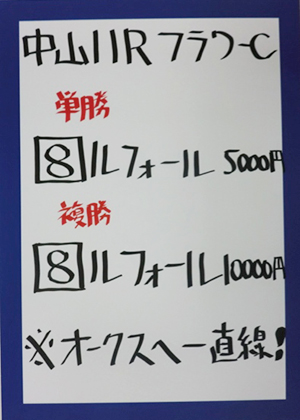 中山11R フラワーC
単勝
8 ルフォール 5000円
複勝
8 ルフォール 10000円
※オークスへ一直線!